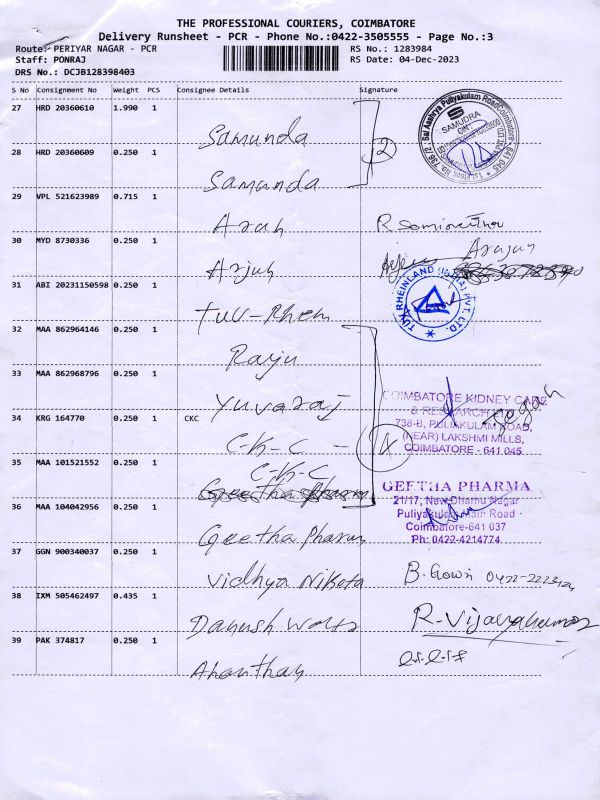 THE PROFESSIONAL COURIERS, COIMBATORE
Delivery Runsheet - PCR - Phone No.:0422-3505555 - Page No.:3
Route: PERIYAR NAGAR - PCR
RS No.: 1283984
Staff: PONRAJ
RS Date: 04-Dec-2023
DRS No.: DCJB128398403
S No Consignment No Weight PCS Consignee Details Signature
27 HRD 20360610 1.990 1
Samunda
28 HRD 20360609 0.250 1
Samanda
2
SAMUDRA
29 VPL 521623989 0.715 1
30 MYD 8730336 0.250 1
Arjun
31 ABI 20231150598 0.250 1
Tuv-Rhem
TUV RHEINLAND (INDIA) PVT. LTD.
32 MAA 862964146 0.250 1
Raju
33 MAA 862968796 0.250 1
Yuvaraj
34 KRG 164770 0.250 1 CKC
C-K-C
4
COIMBATORE KIDNEY CARE
& RESEARCH
738-B, PULIAKULAM ROAD,
(NEAR) LAKSHMI MILLS,
COIMBATORE - 641 045
35 MAA 101521552 0.250 1
C-K-C
36 MAA 104042956 0.250 1
Geetha Pharm
GEETHA PHARMA
21/17, New Dhamu Nagar
Puliyakulam Main Road
Coimbatore-641 037
Ph: 0422-4214774
37 GGN 900340037 0.250 1
Vidhya Niketa
B. Gowri
38 IXM 505462497 0.435 1
Danush
R-Vijayakumar
39 PAK 374817 0.250 1
Ahanthan